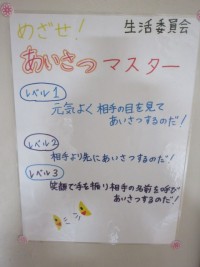 生活委員会
めざせ!
あいさつマスター
レベル1
元気よく相手の目を見て
あいさつするのだ!
レベル2
相手より先にあいさつするのだ!
レベル3
笑顔で手を振り相手の名前を呼び
あいさつするのだ!